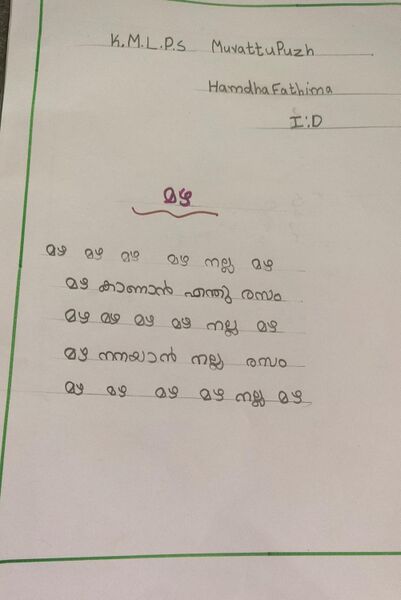 K.M.L.P.S MuvattuPuzh
Hamdha Fathima
I:D
മഴ
മഴ മഴ മഴ മഴ നല്ല മഴ
മഴ കാണാൻ എന്തു രസം
മഴ മഴ മഴ മഴ നല്ല മഴ
മഴ നനയാൻ നല്ല രസം
മഴ മഴ മഴ മഴ നല്ല മഴ